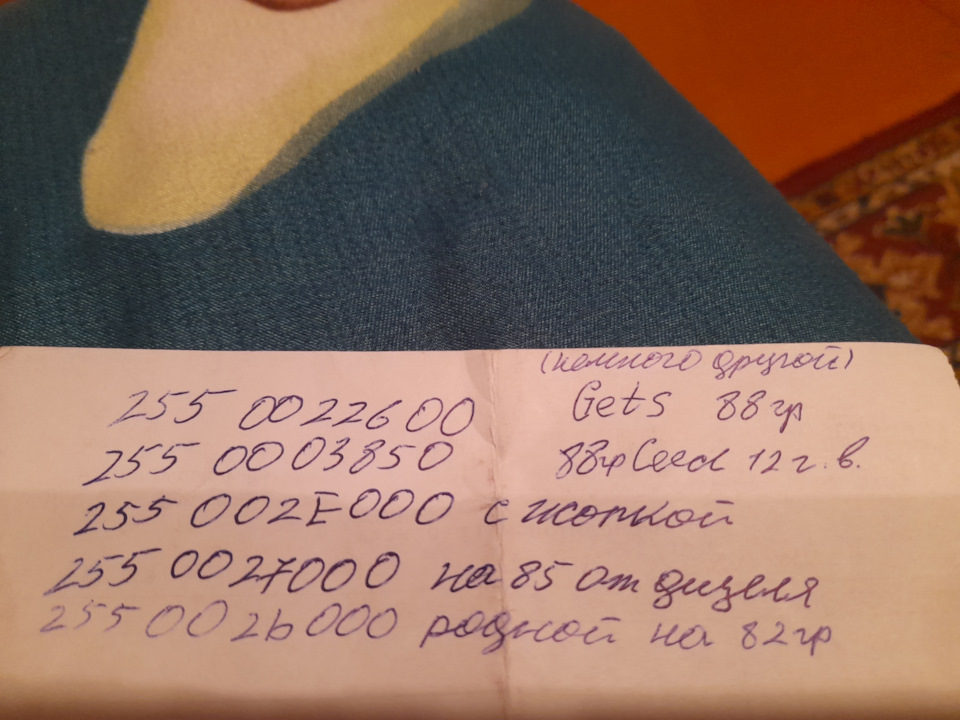 (немного другой)
255 0022600 Gets 88гр
255 0003850 88гр Ceed 12 г.в.
255 002E000 с жопкой
255 0027000 на 85 от дизеля
255 002b000 родной на 82гр